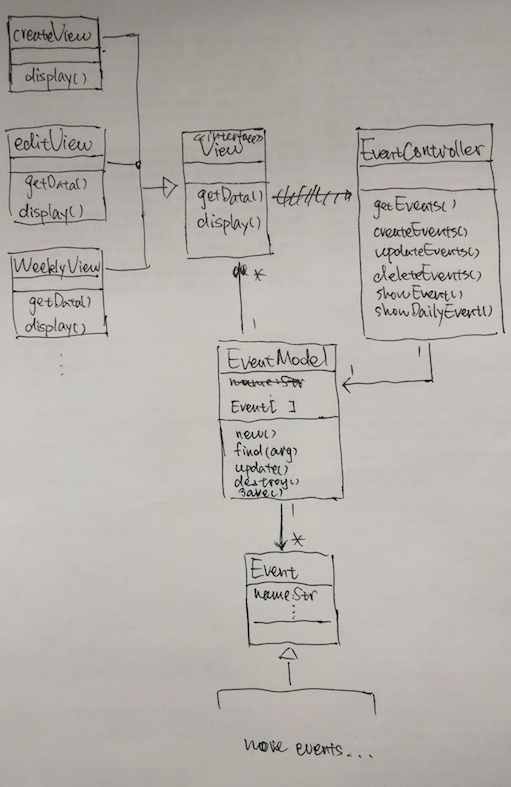 createView
display()
editView
getData()
display()
WeeklyView
getData()
display()
<<interface>>
View
getData()
display()
*
1
EventController
getEvents()
createEvents()
updateEvents()
deleteEvents()
showEvent()
showDailyEvent()
1
1
EventModel
name:Str
Event[ ]
new()
find(arg)
update()
destroy()
save()
1
*
Event
name:Str
more events...